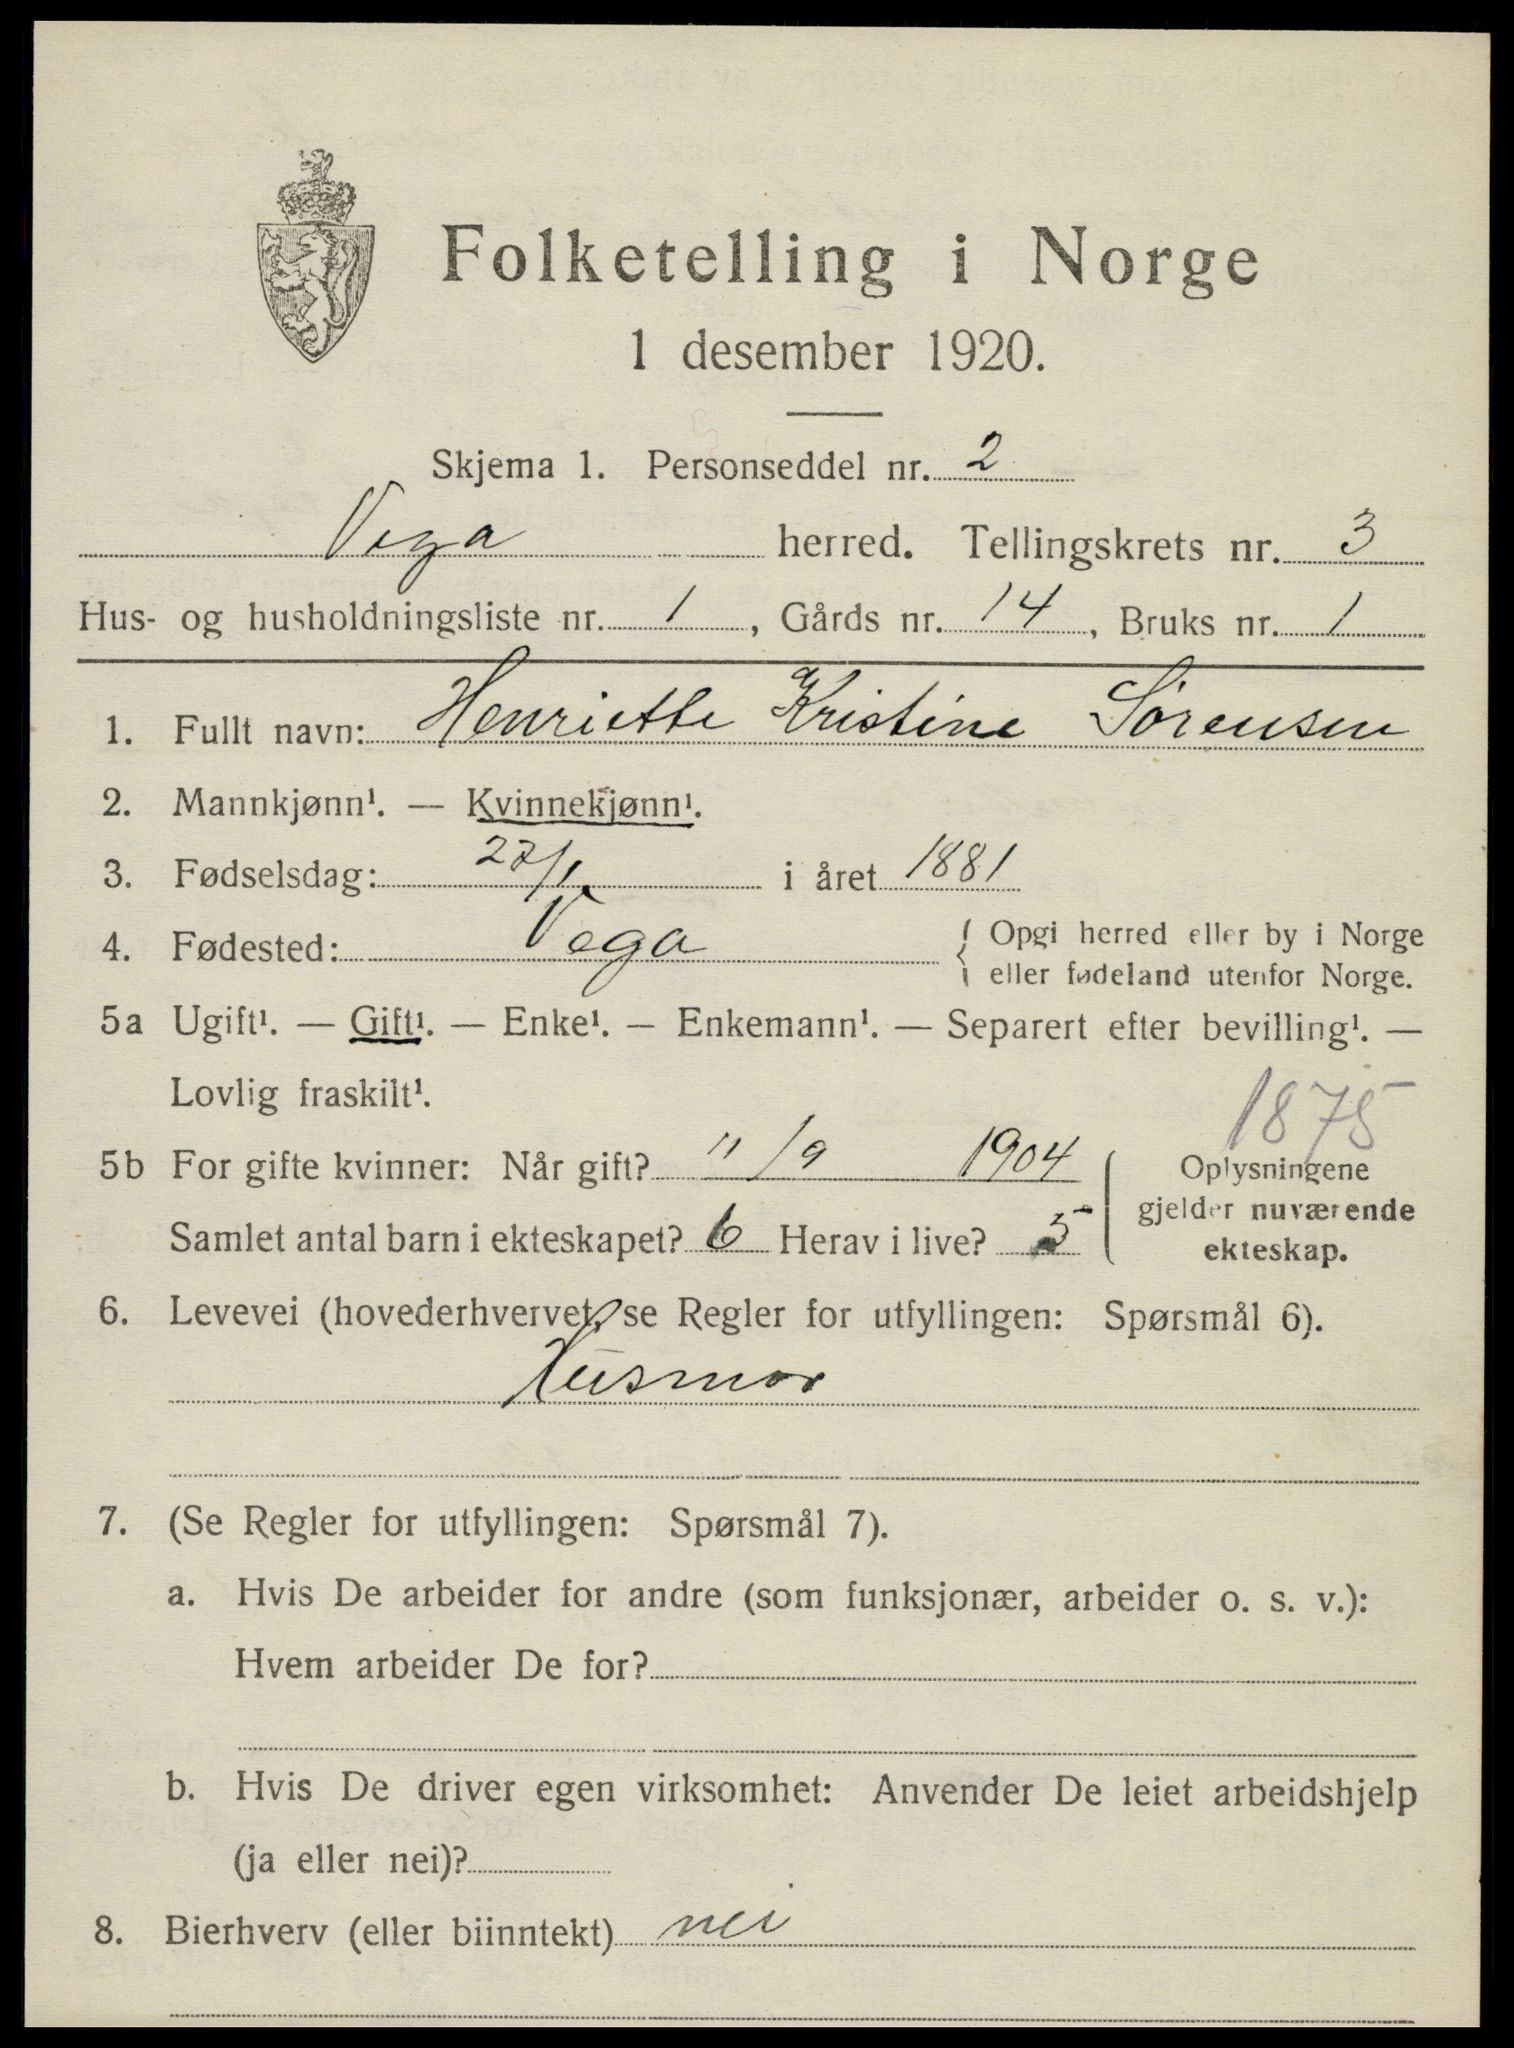 Folketelling i Norge
1 desember 1920.
Skjema 1. Personseddel nr. 2
Vega herred. Tellingskrets nr. 3
Hus- og husholdningsliste nr. 1, Gårds nr. 14, Bruks nr. 1
1. Fullt navn: Henriette Kristine Sörensen
2. Mannkjønn¹. — Kvinnekjønn¹.
3. Fødselsdag: 27/1 i året 1881
4. Fødested: Vega { Opgi herred eller by i Norge
eller fødeland utenfor Norge.
5a Ugift¹. — Gift¹. — Enke¹. — Enkemann¹. — Separert efter bevilling¹. —
Lovlig fraskilt¹.
1875
5b For gifte kvinner: Når gift? 11/9 1904 { Oplysningene
gjelder nuværende
Samlet antal barn i ekteskapet? 6 Herav i live? 5
ekteskap.
6. Levevei (hovederhvervet, se Regler for utfyllingen: Spørsmål 6).
Husmor
7. (Se Regler for utfyllingen: Spørsmål 7).
a. Hvis De arbeider for andre (som funksjonær, arbeider o. s. v.):
Hvem arbeider De for?
b. Hvis De driver egen virksomhet: Anvender De leiet arbeidshjelp
(ja eller nei)?
8. Bierhverv (eller biinntekt) nei